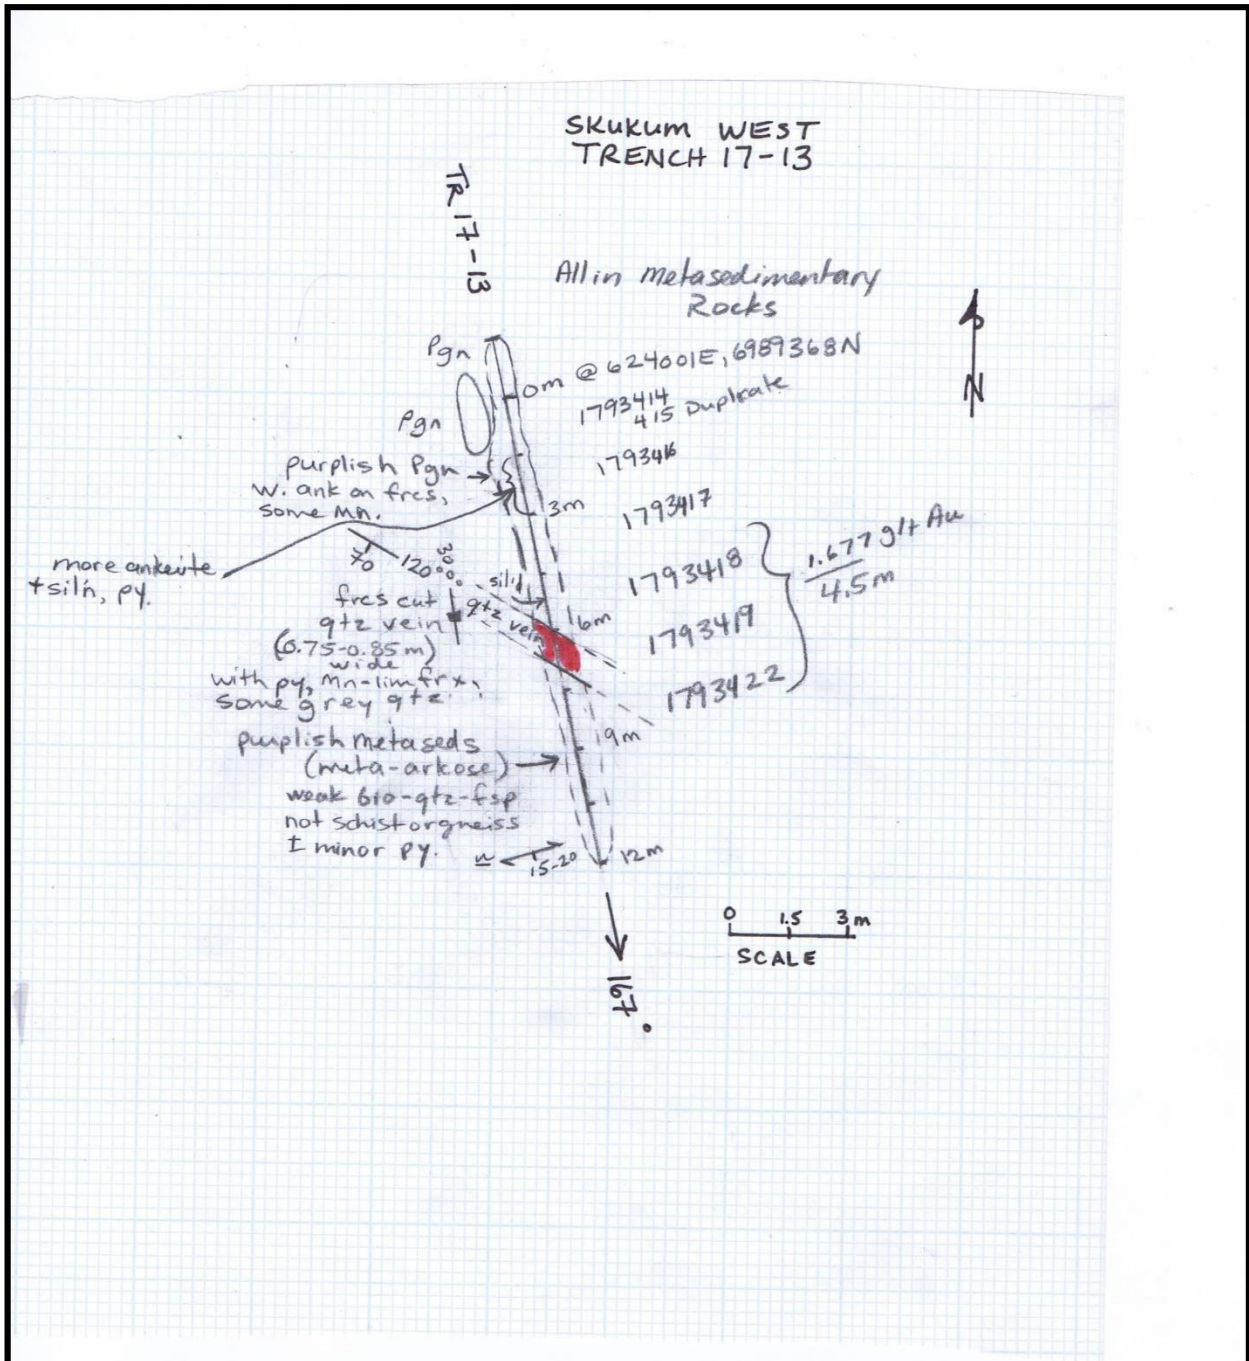 SKUKUM WEST
TRENCH 17-13
TR 17-13
All in metasedimentary
Rocks
Pgn
0m @ 624001E, 6989368N
1793414
415 Duplicate
Pgn
1793416
purplish Pgn
w. ank on frcs,
some Mn.
3m
1793417
N
more ankerite
+ sil'n, py.
70
120°
30°
sil'd
1793418
1.677 g/t Au
4.5m
frcs cut
qtz vein
(0.75-0.85 m)
wide
with py, Mn-lim frx,
some grey qtz.
qtz vein
6m
1793419
1793422
9m
purplish metaseds
(meta-arkose)
weak bio-qtz-fsp
not schist or gneiss
± minor py.
15-20
12m
0 1.5 3m
SCALE
167°